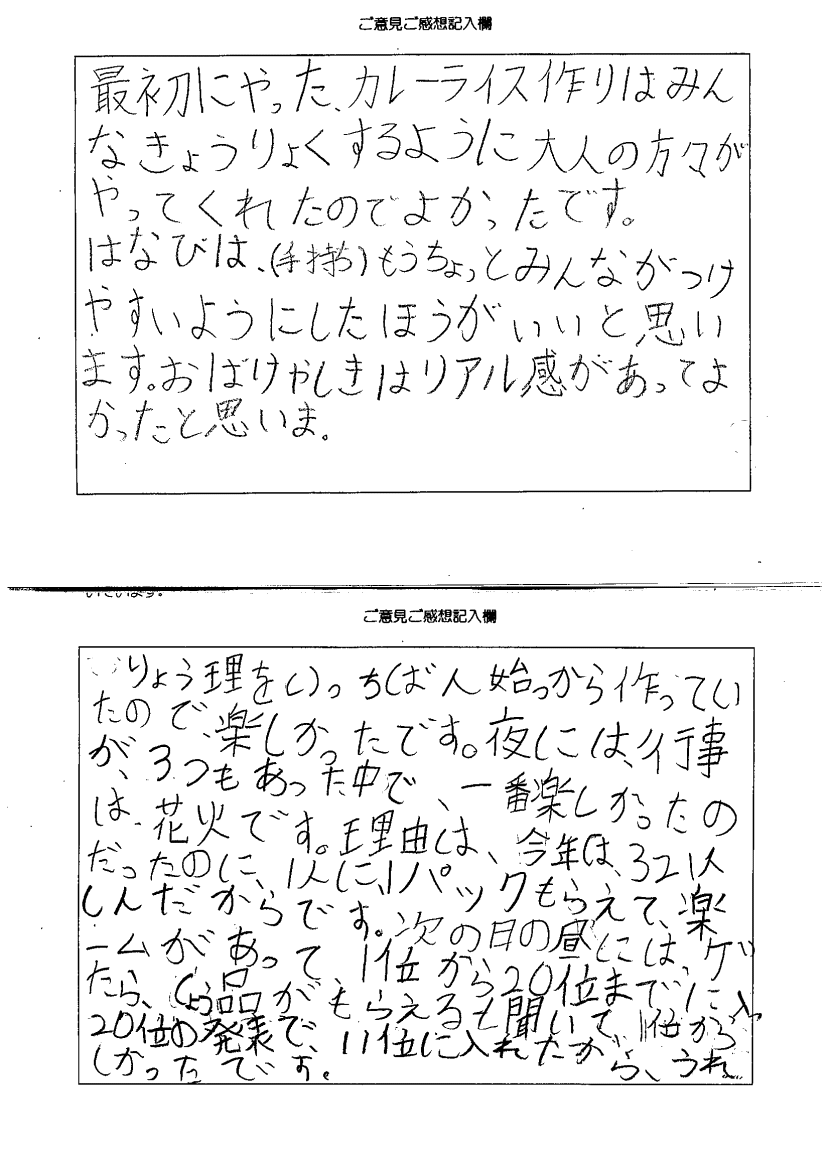 ご意見ご感想記入欄
最初にやった、カレーライス作りはみん
なきょうりょくするように大人の方々が
やってくれたのでよかったです。
はなびは、(手持ち)もうちょっとみんながつけ
やすいようにしたほうがいいと思い
ます。おばけやしきはリアル感があってよ
かったと思いま。
ご意見ご感想記入欄
りょう理をいっちばん始っから作ってい
たので、楽しかったです。夜には、行事
が、3つもあった中で、一番楽しかったの
は、花火です。理由は、今年は、321人
だったのに、1人に、1パックもらえて、楽
しんだからです。次の日の昼には、ゲ
ームがあって、1位から20位までに入っ
たら、しょう品がもらえると聞いて、11位から
20位の発表で、11位に入れたから、うれ
しかったです。